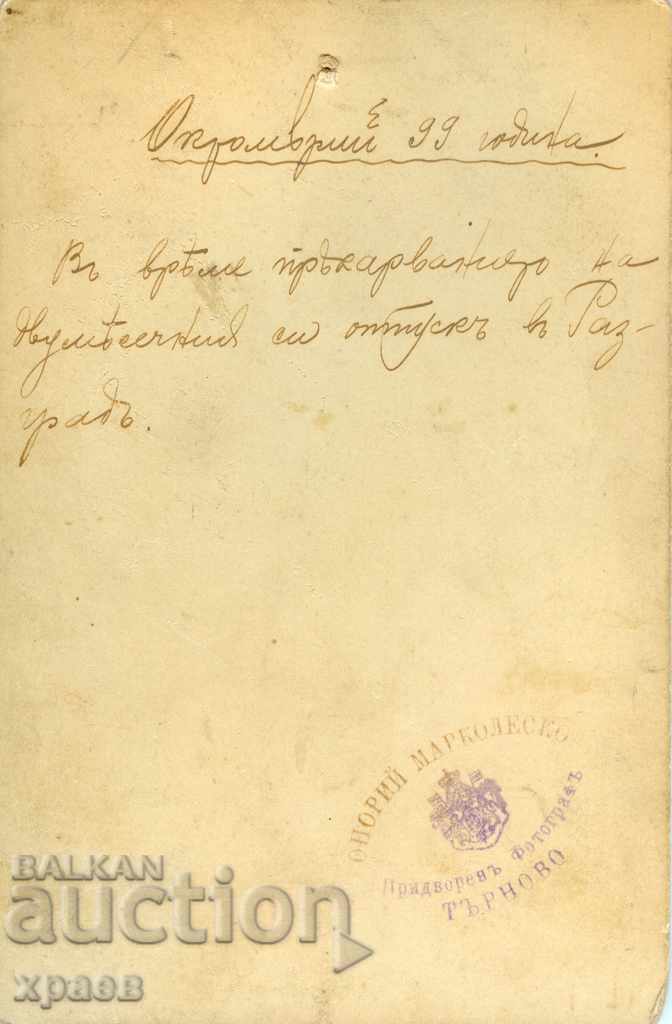 Октомврий 99 година.
Въ врѣме прѣкарванието на
двумѣсечния си отпускъ въ Раз-
градъ.
ОНОРИЙ МАРКОЛЕСКО
Придворенъ Фотографъ
ТЪРНОВО
BALKAN
auction
храев